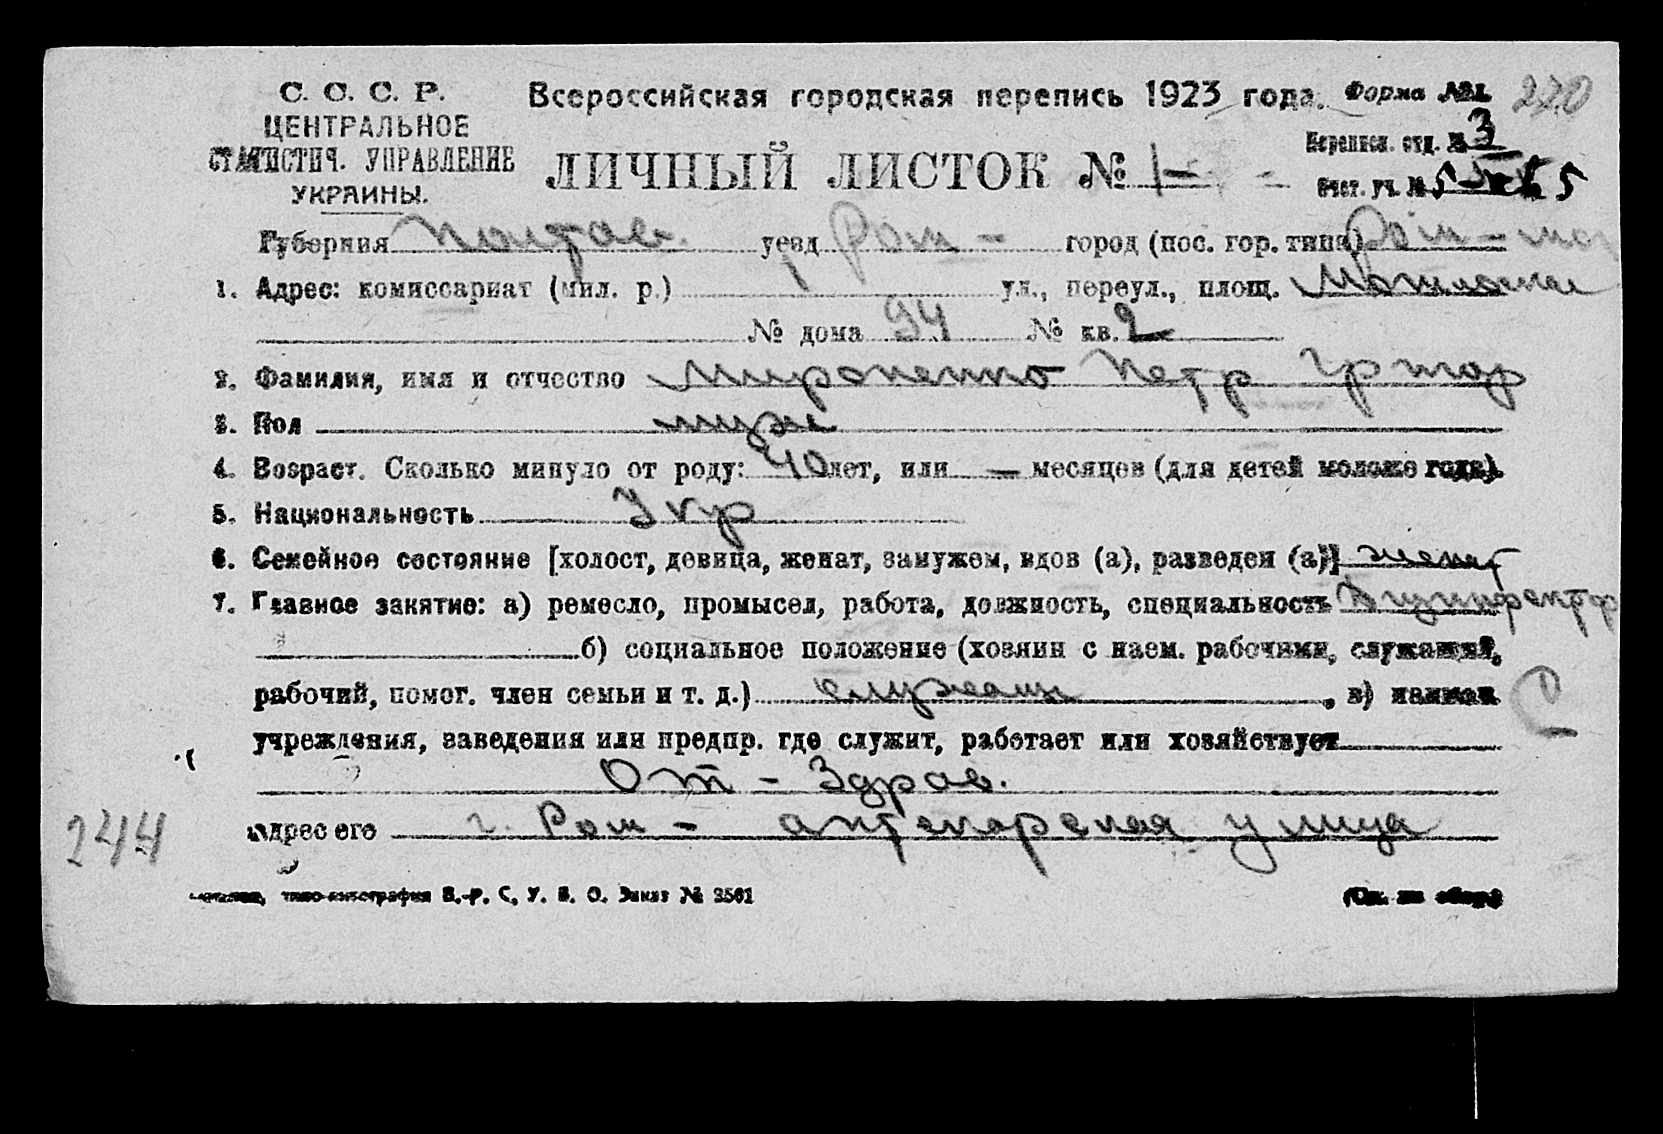 С. С. С. Р.
ЦЕНТРАЛЬНОЕ
СТАТИСТИЧ. УПРАВЛЕНИЕ
УКРАИНЫ.
Всероссийская городская перепись 1923 года.
Форма №1. 270
ЛИЧНЫЙ ЛИСТОК № 1
Переписн. отд. № 3
Счет. уч. № 5
Губерния Полтав. уезд Ром - город (пос. гор. типа) Ром -
1. Адрес: комиссариат (мил. р.) ул., переул., площ.
№ дома 94 № кв. 2
2. Фамилия, имя и отчество Мироненко Петр
3. Пол муж
4. Возраст. Сколько минуло от роду: 40 лет, или — месяцев (для детей моложе года).
5. Национальность Укр
6. Семейное состояние [холост, девица, женат, замужем, вдов (а), разведен (а)] женат
7. Главное занятие: а) ремесло, промысел, работа, должность, специальность
б) социальное положение (хозяин с наем. рабочими, служащий,
рабочий, помог. член семьи и т. д.) служащ , в)
учреждения, заведения или предпр. где служит, работает или хозяйствует
От - Здрав.
адрес его г. Ром - аптекарская улица
244
типо-литография В.-Р. С. У. В. О. Заказ № 3561
(См. на обор.)